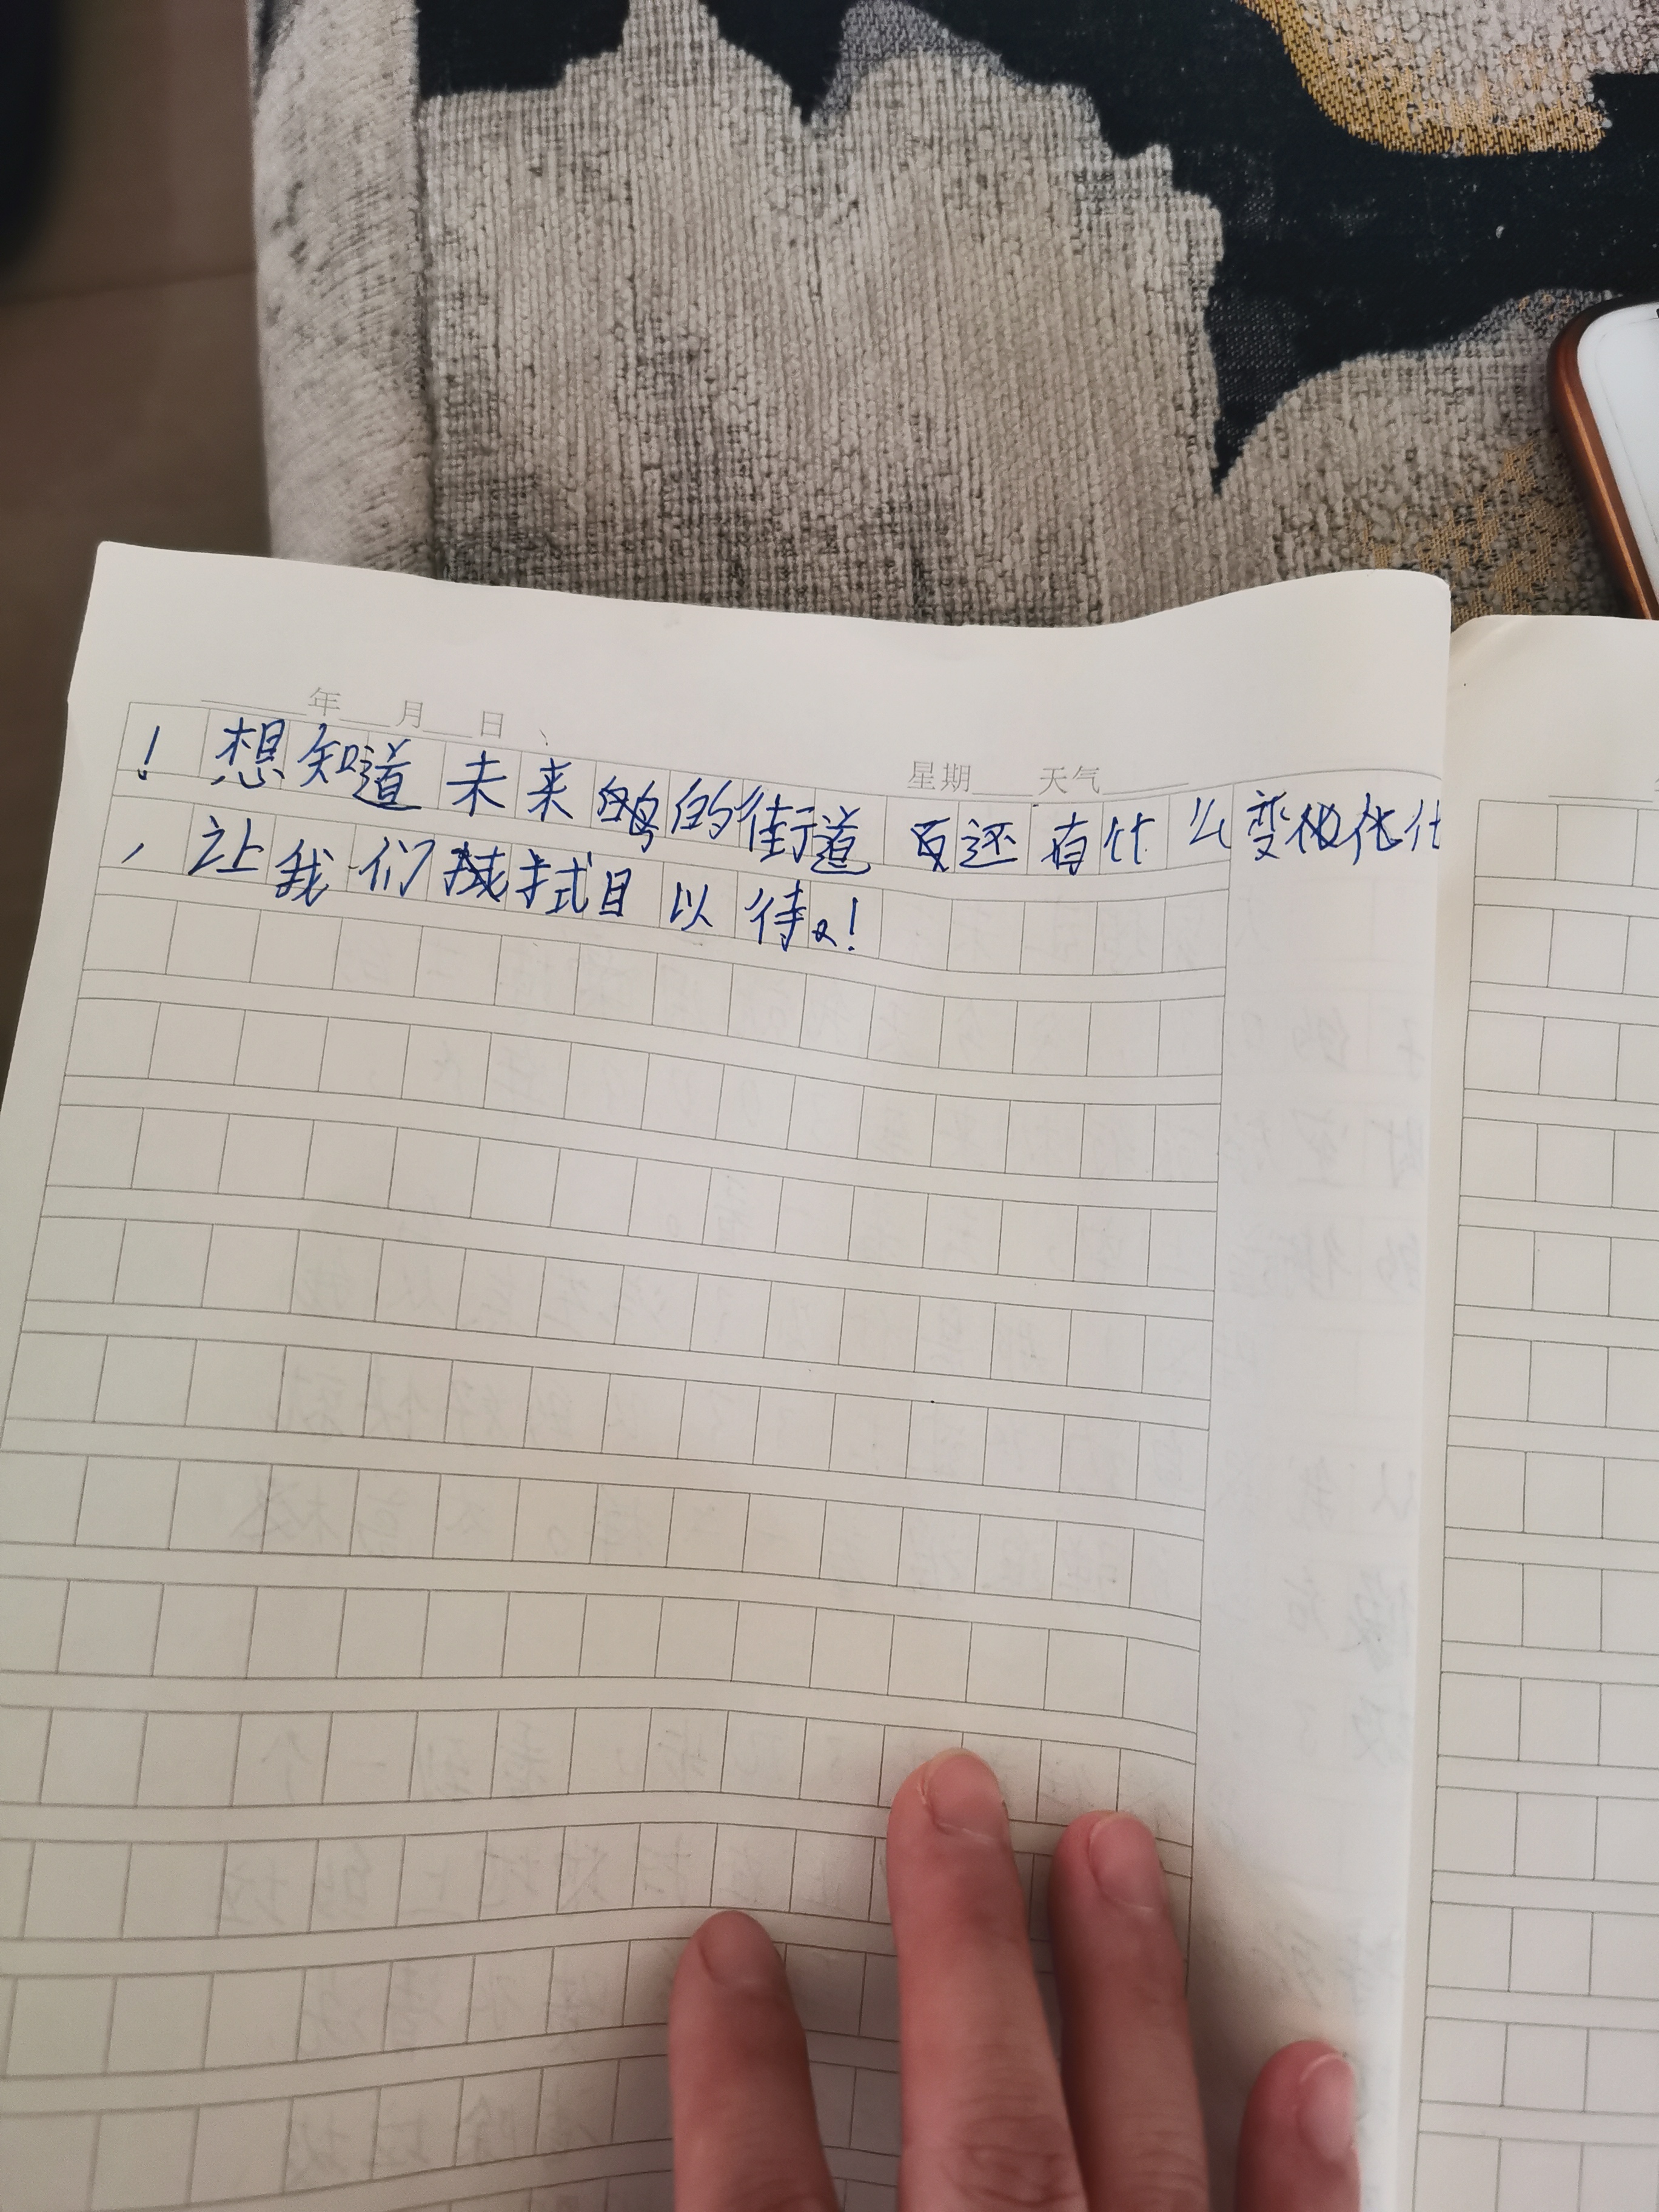 年 月 日
星期 天气
！想知道未来的街道还有什么变化
，让我们拭目以待！